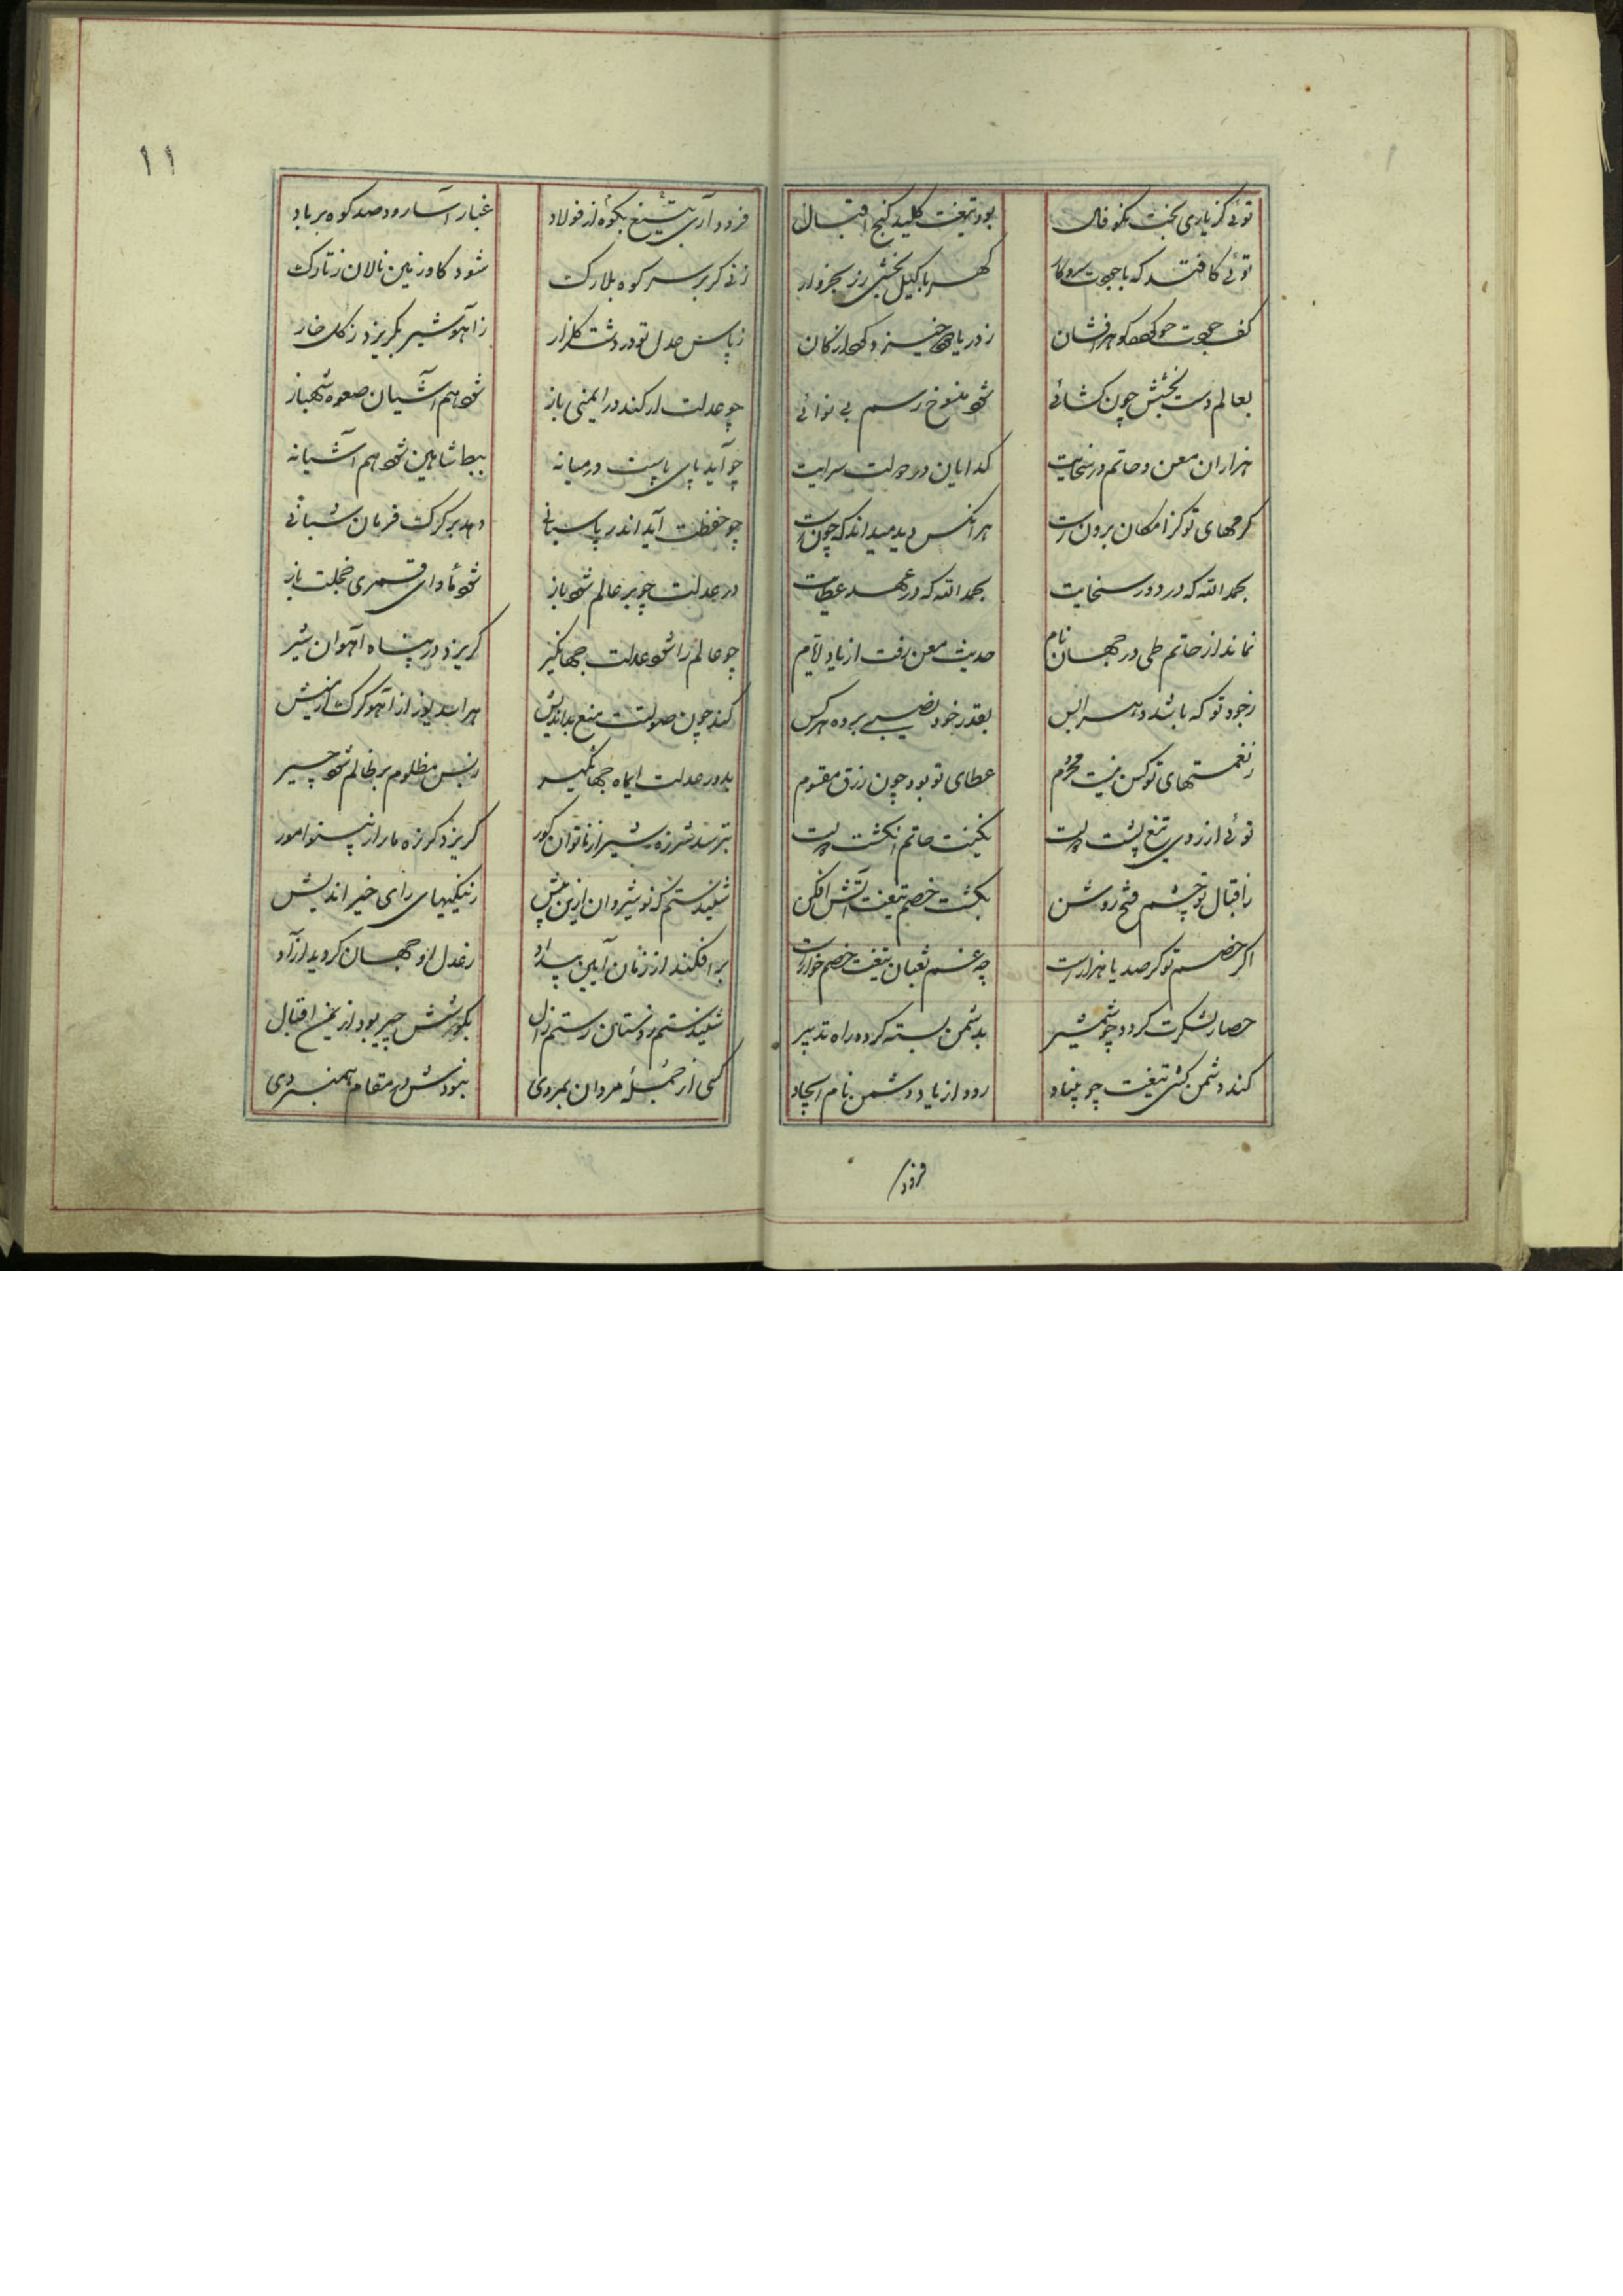 توئی کز یاری بخت نکو فال بود تیغت کلید گنج اقبال
توئی کافتد که با جودت سر و کار گهر با کیل بخشی زر بخروار
کف جودت چو گوهر افشان ز دریا خیزد و گهر از کان
بعالم دست بخشش چون گشائی شود منسوخ رسم بی نوائی
هزاران معن و حاتم در سخایت گدایان در دولت سرایت
کرمهای تو کز امکان برونست هر آنکس دید میداند که چونست
بحمد الله که در دور سخایت بحمد الله که در عهد عطایت
نماند از حاتم طی در جهان نام حدیث معن رفت از یاد ایام
ز جود تو که باشد دهر را بس بقدر خود نصیبی برده هرکس
ز نعمتهای تو کس نیست محروم عطای تو بود چون رزق مقسوم
توئی از روی تیغ پشت نگینت حاتم انگشت
ز اقبال تو چشم فتح روشن بکشت خصم تیغت آتش افکن
اگر خصم تو گر صد یا هزارست چه غم ثعبان تیغت خصم خوارست
حصار لشکرت گردد چو شمشیر بدشمن بسته گردد راه تدبیر
کند دشمن کشی تیغت چو بنیاد رود از یاد دشمن نام ایجاد
فرود
۱۱
فرود آری بتیغ بکوه از فولاد غبار آسا رود صد کوه بر باد
زنی گر بر سر کوه بلارک شود گاو زمین نالان ز تارک
ز پاس عدل تو در دشت گلزار ز آهو شیر بگریزد ز گل خار
چو عدلت ار کند در ایمنی باز شود هم آشیان صعوه شهباز
چو آید پای پاست در میانه ببط شاهین شود هم آشیانه
چو حفظت آید اندر پاسبانی دهد بر گرگ فرمان شبانی
در عدلت چو بر عالم شود باز شود مأوای قمری خجلت باز
چو عالم را شود عدلت جهانگیر گریزد در پناه آهوان شیر
کند چون صولتت منع بداندیش هراسد یوز از آهو گرگ از میش
بدور عدلت ایماه جهانگیر ز بس مظلوم بر ظالم شود چیر
بترسد شرزه شیر از ناتوان گور گریزد گرزه مار از نیستو مور
شنیدستم که نوشیروان ازین پیش ز نیکیهای رای خیر اندیش
بر افکند از زمان آیین بیداد ز عدل او جهان گردید آزاد
شنیدستم ز دستان رستم زال بکورشش چیر بود از یمن اقبال
کسی از جملهٔ مردان بمردی نبودش در مقام همنبردی